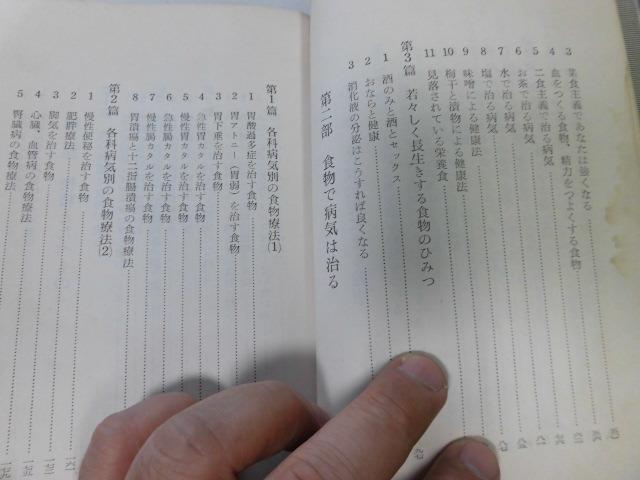 3 菜食主義であなたは強くなる
4 血をつくる食物、精力をつよくする食物
5 二食主義で治る病気
6 お茶で治る病気
7 水で治る病気
8 塩で治る病気
9 味噌による健康法
10 梅干と漬物による健康法
11 見落されている栄養食
第3篇 若々しく長生きする食物のひみつ
1 酒のみと酒とセックス
2 おならと健康
3 消化液の分泌はこうすれば良くなる
第二部 食物で病気は治る
第1篇 各科病気別の食物療法(1)
1 胃酸過多症を治す食物
2 胃アトニー(胃弱)を治す食物
3 胃下垂を治す食物
4 急性胃カタルを治す食物
5 慢性胃カタルを治す食物
6 急性腸カタルを治す食物
7 慢性腸カタルを治す食物
8 胃潰瘍と十二指腸潰瘍の食物療法
第2篇 各科病気別の食物療法(2)
1 慢性便秘を治す食物
2 肥胖療法
3 脚気を治す食物
4 心臓、血管病の食物療法
5 腎臓病の食物療法